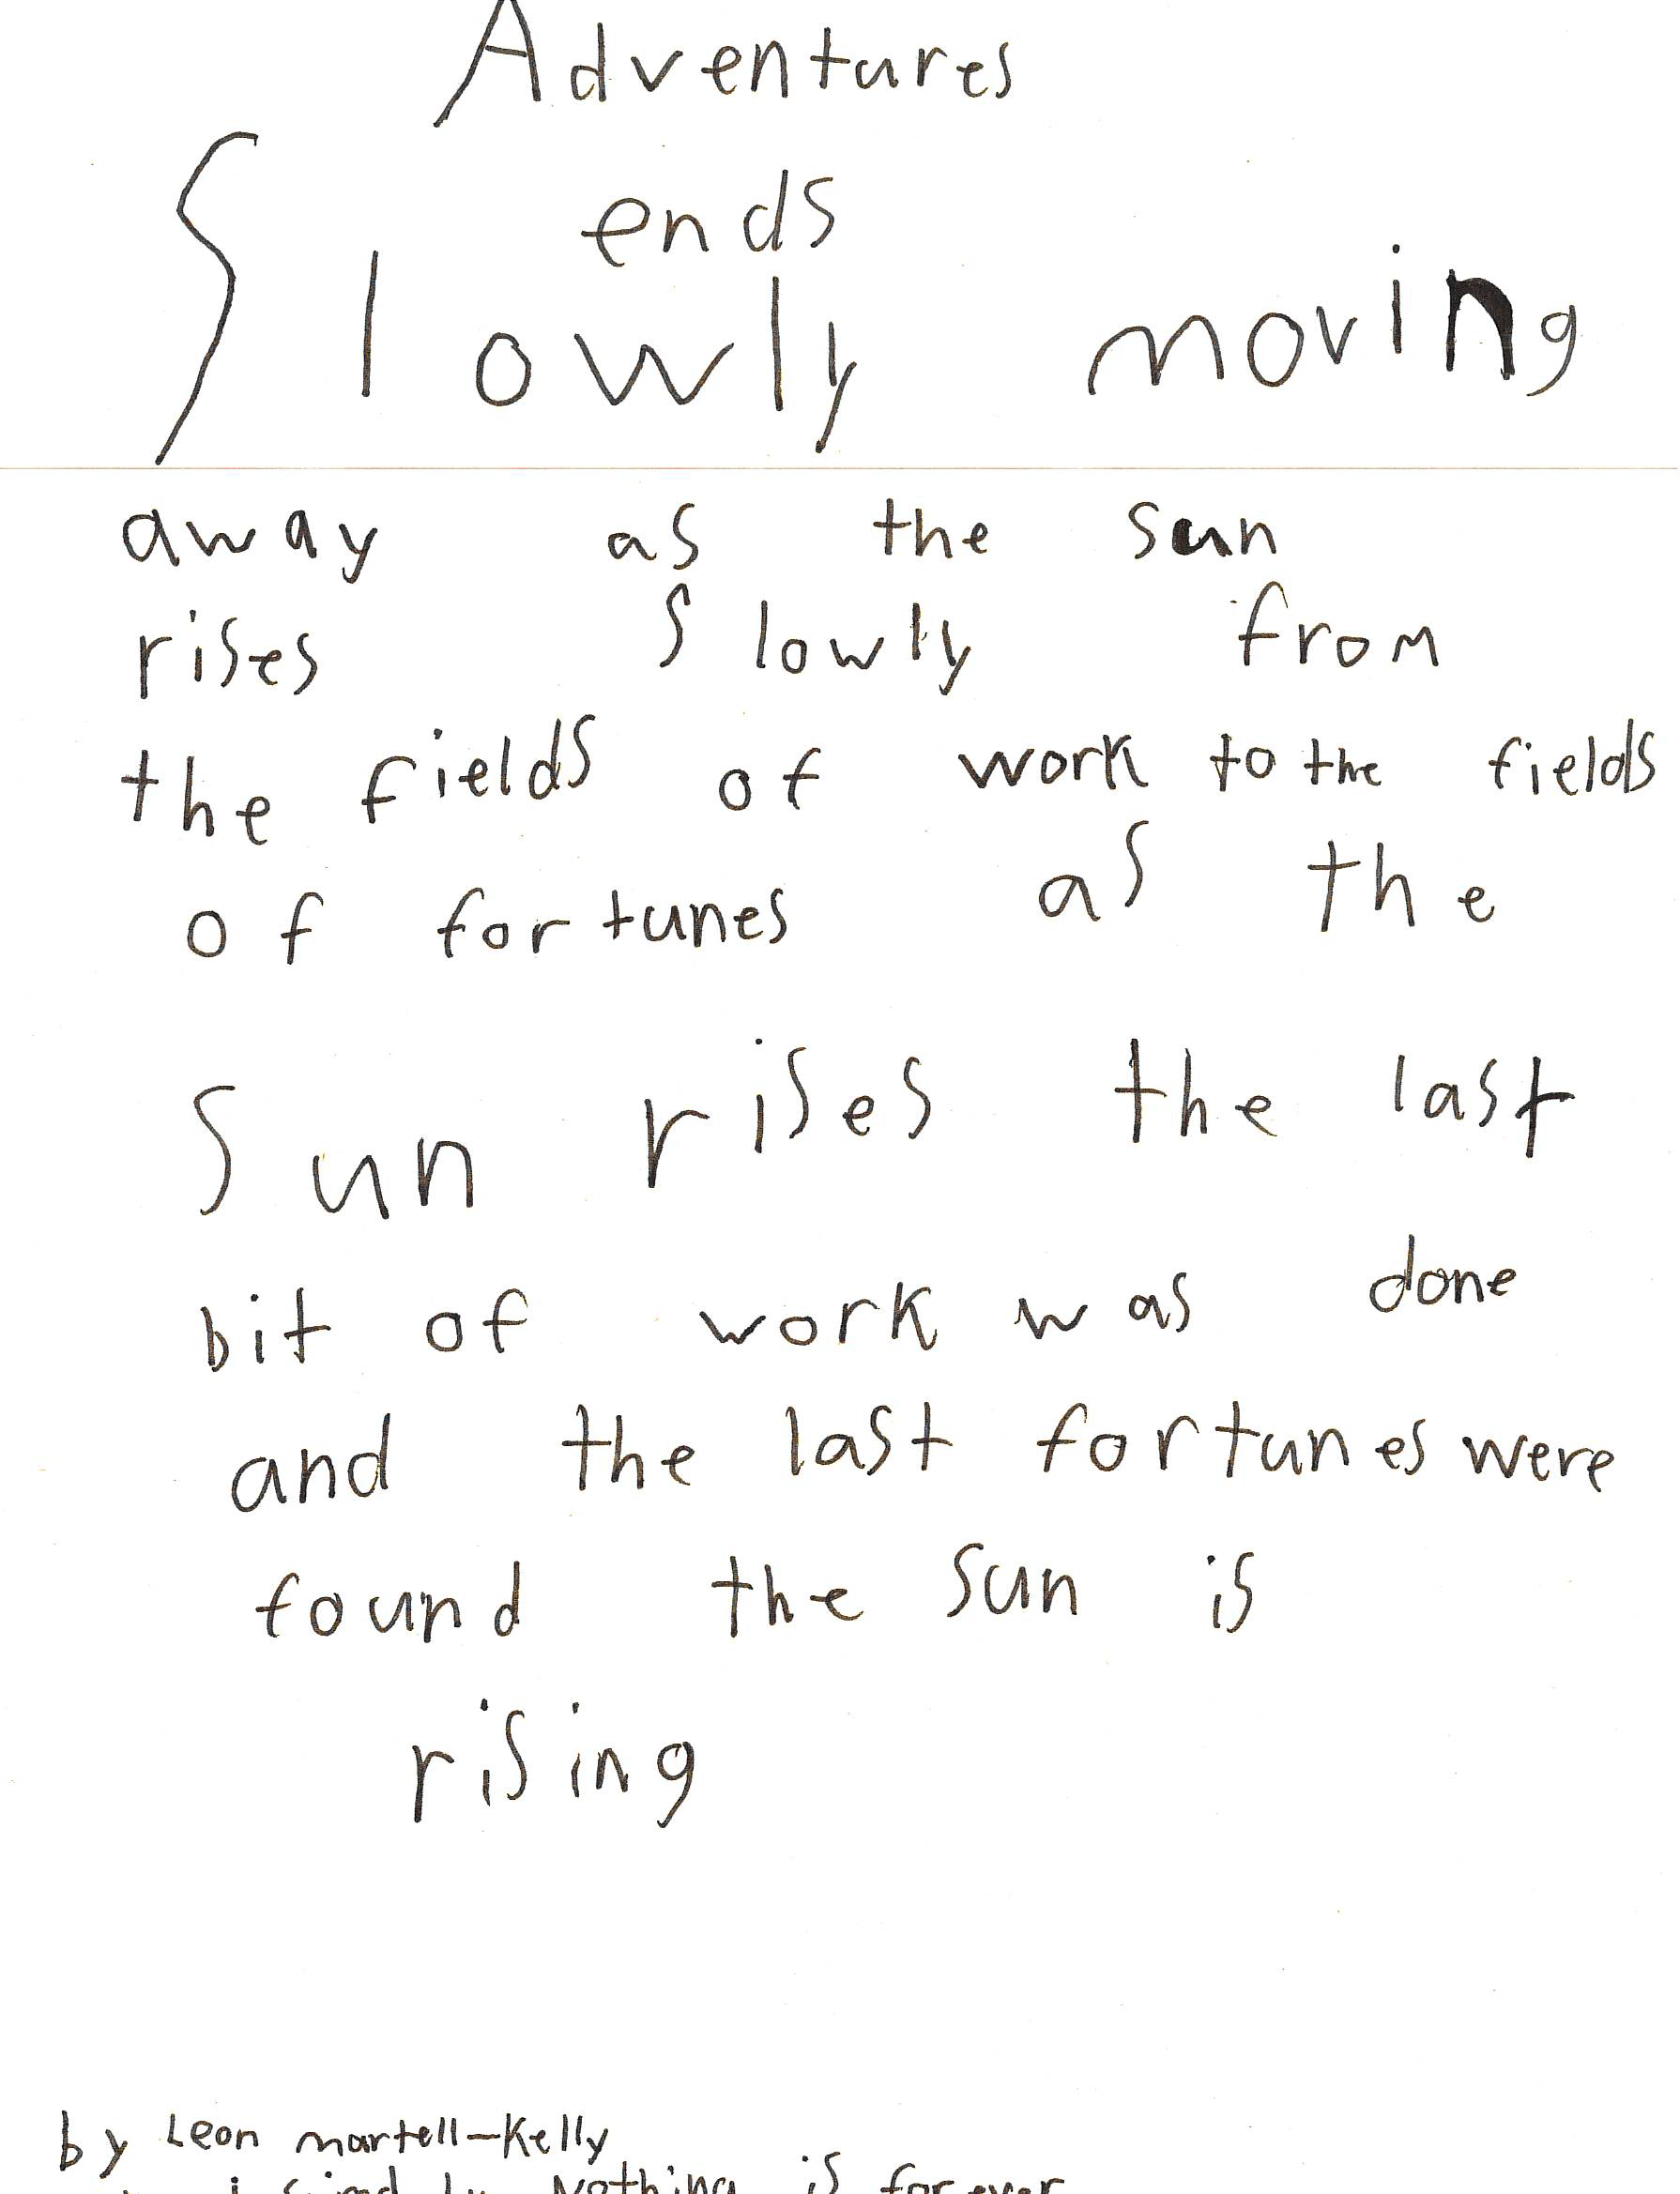 Adventures
ends
Slowly moving
away as the sun
rises slowly from
the fields of work to the fields
of fortunes as the
Sun rises the last
bit of work was done
and the last fortunes were
found the sun is
rising
by Leon martell-Kelly
Nothing is forever